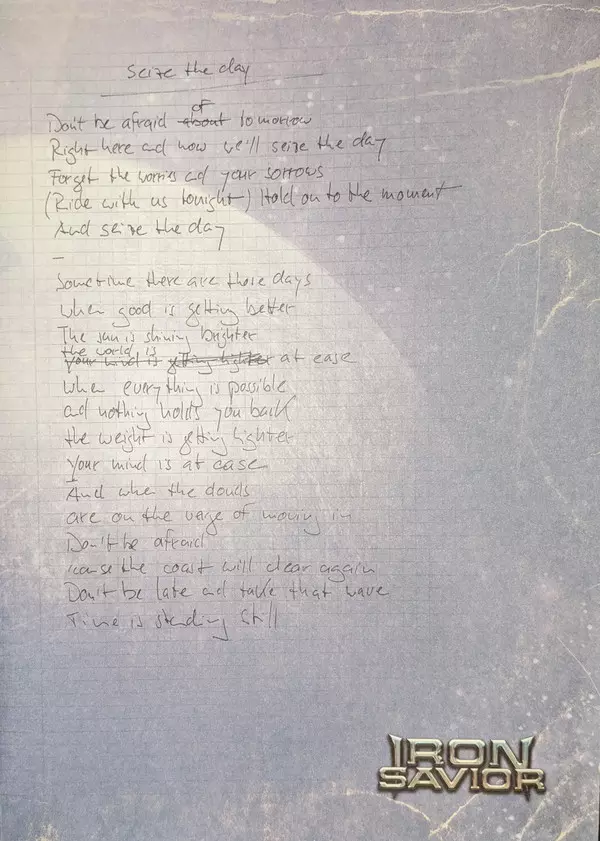 Seize the day
Don't be afraid about of tomorrow
Right here ad now we'll seize the day
Forget the worries ad your sorrows
(Ride with us tonight) Hold on to the moment
And seize the day
Sometime there are these days
when good is getting better
The sun is shining brighter
the world is
your mind is getting lighter at ease
when everything is possible
ad nothing holds you back
the weight is getting lighter
Your mind is at ease
And when the clouds
are on the verge of moving in
Don't be afraid
'cause the coast will clear again
Don't be late ad take that wave
Time is standing still
IRON
SAVIOR